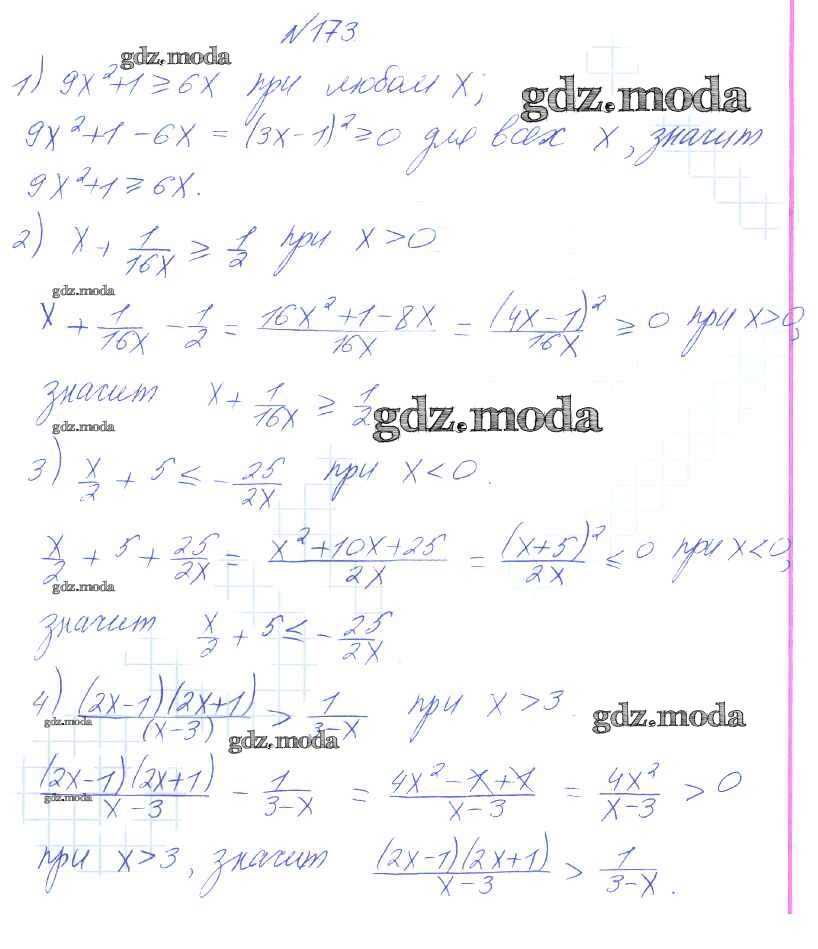 №173
gdz.moda
1) 9x²+1 ≥ 6x при любом x;
gdz.moda
9x²+1-6x = (3x-1)² ≥ 0 для всех x, значит
9x²+1 ≥ 6x.
2) x + 1/16x ≥ 1/2 при x > 0
gdz.moda
x + 1/16x - 1/2 = 16x²+1-8x/16x = (4x-1)²/16x ≥ 0 при x>0,
значит x + 1/16x ≥ 1/2
gdz.moda
gdz.moda
3) x/2 + 5 ≤ - 25/2x при x < 0.
x/2 + 5 + 25/2x = x²+10x+25/2x = (x+5)²/2x ≤ 0 при x<0,
gdz.moda
значит x/2 + 5 ≤ - 25/2x.
4) (2x-1)(2x+1)/(x-3) > 1/3-x при x > 3.
gdz.moda
gdz.moda
gdz.moda
(2x-1)(2x+1)/x-3 - 1/3-x = 4x²-1+1/x-3 = 4x²/x-3 > 0
gdz.moda
при x>3, значит (2x-1)(2x+1)/x-3 > 1/3-x.